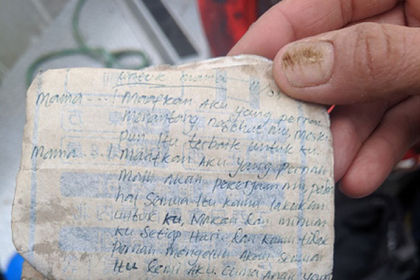 untuk mama
Mama....! Maafkan Aku yang pernah
menantang nasehat mu, meski
pun Itu terbaik untuk ku.
Mama....! maafkan Aku yang pernah
malu akan pekerjaan mu, pada
hal semua Itu kamu lakukan
untuk ku makan dan minum
ku setiap Hari. Dan kamu tidak
pernah mengeluh Akan semua
Itu Demi Aku. Cuma Anak yang